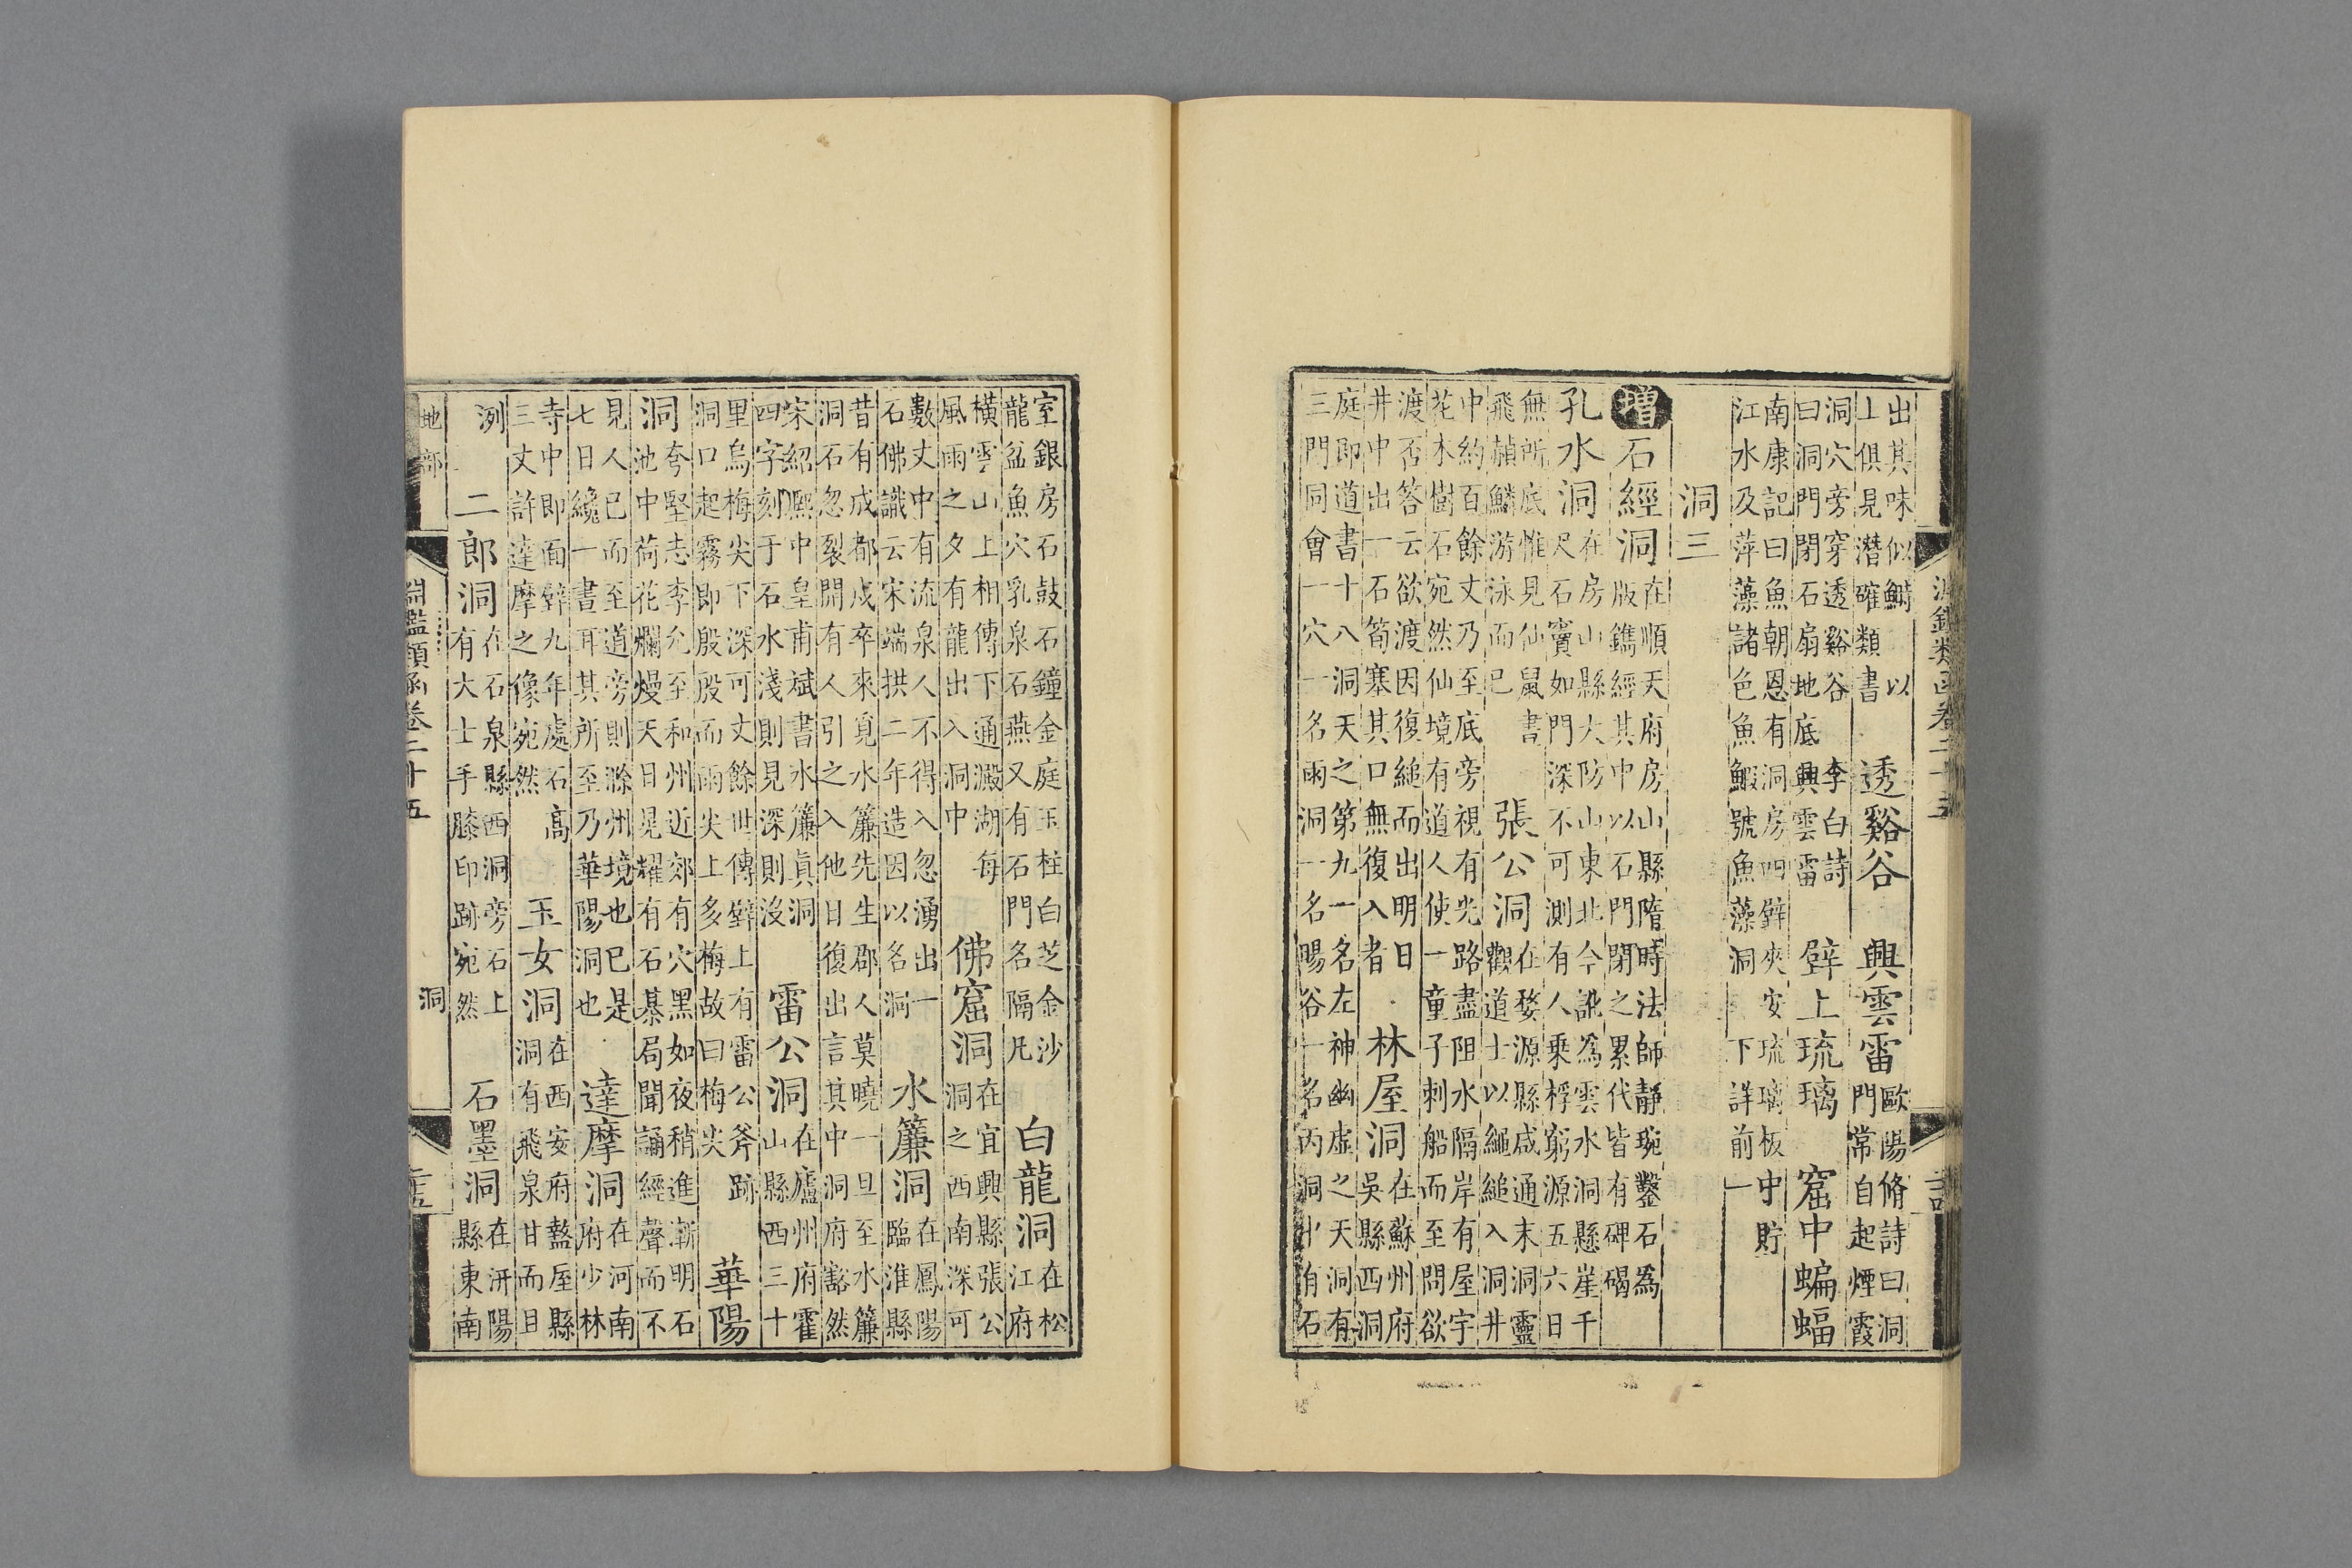 淵鑑類函卷二十五
出其味似鱗以
上俱見潛確類書
透谿谷
興雲雷
歐陽脩詩曰洞
門常自起煙霞
洞穴旁穿透谿谷
曰洞門閉石扇地底興雲雷
李白詩
壁上琉璃
窟中蝙蝠
南康記曰魚朝恩有洞房四壁夾安琉璃板中貯
江水及萍藻諸色魚鰕號魚藻洞
下詳前一
洞三
增
石經洞
在順天府房山縣隋時法師靜琬鑿石為
版鐫經其中以石門閉之累代皆有碑碣
孔水洞
在房山縣大防山東北今訛為雲水洞懸崖千
尺石竇如門深不可測有人乘桴窮源五六日
無所底惟見仙鼠書
飛頳鱗游泳而已
張公洞
在婺源縣咸通末洞靈
觀道士以繩縋入洞井
中約百餘丈乃至底旁視有光路盡阻水隔岸有屋宇
花木樹石宛然仙境有道人使一童子刺船而至問欲
渡否答云欲渡因復縋而出明日
井中出一石筍塞其口無復入者
林屋洞
在蘇州府
吳縣西洞
庭即道書十八洞天之第九一名左神幽虛之天洞有
三門同會一穴一名雨洞一名暘谷一名丙洞中有石
室銀房石鼓石鐘金庭玉柱白芝金沙
龍盆魚穴乳泉石燕又有石門名隔凡
白龍洞
在松
江府
橫雲山上相傳下通澱湖每
風雨之夕有龍出入洞中
佛窟洞
在宜興縣張公
洞之西南深可
數丈中有流泉人不得入忽湧出一
石佛識云宋端拱二年造因以名洞
水簾洞
在鳳陽
臨淮縣
昔有成都戍卒來覓水簾先生郡人莫曉一旦至水簾
洞石忽裂開有人引之入他日復出言其中洞府豁然
宋紹熙中皇甫斌書水簾真洞
四字刻于石水淺則見深則沒
雷公洞
在廬州府霍
山縣西三十
里烏梅尖下深可丈餘世傳壁上有雷公斧跡
洞口起霧即殷殷而雨尖上多梅故曰梅尖
華陽
洞
夸堅志李允至和州近郊有穴黑如夜稍進漸明石
池中荷花爛熳天日晃耀有石棊局聞誦經聲而不
見人已而至道旁則滁州境也已是
七日纔一書耳其所至乃華陽洞也
達摩洞
在河南
府少林
寺中即面壁九年處石高
三丈許達摩之像宛然
玉女洞
在西安府盩厔縣
洞有飛泉甘而且
洌
二郎洞
在石泉縣西洞旁石上
有大士手膝印跡宛然
石墨洞
在汧陽
縣東南
地部
洞
淵鑑類函卷二十五